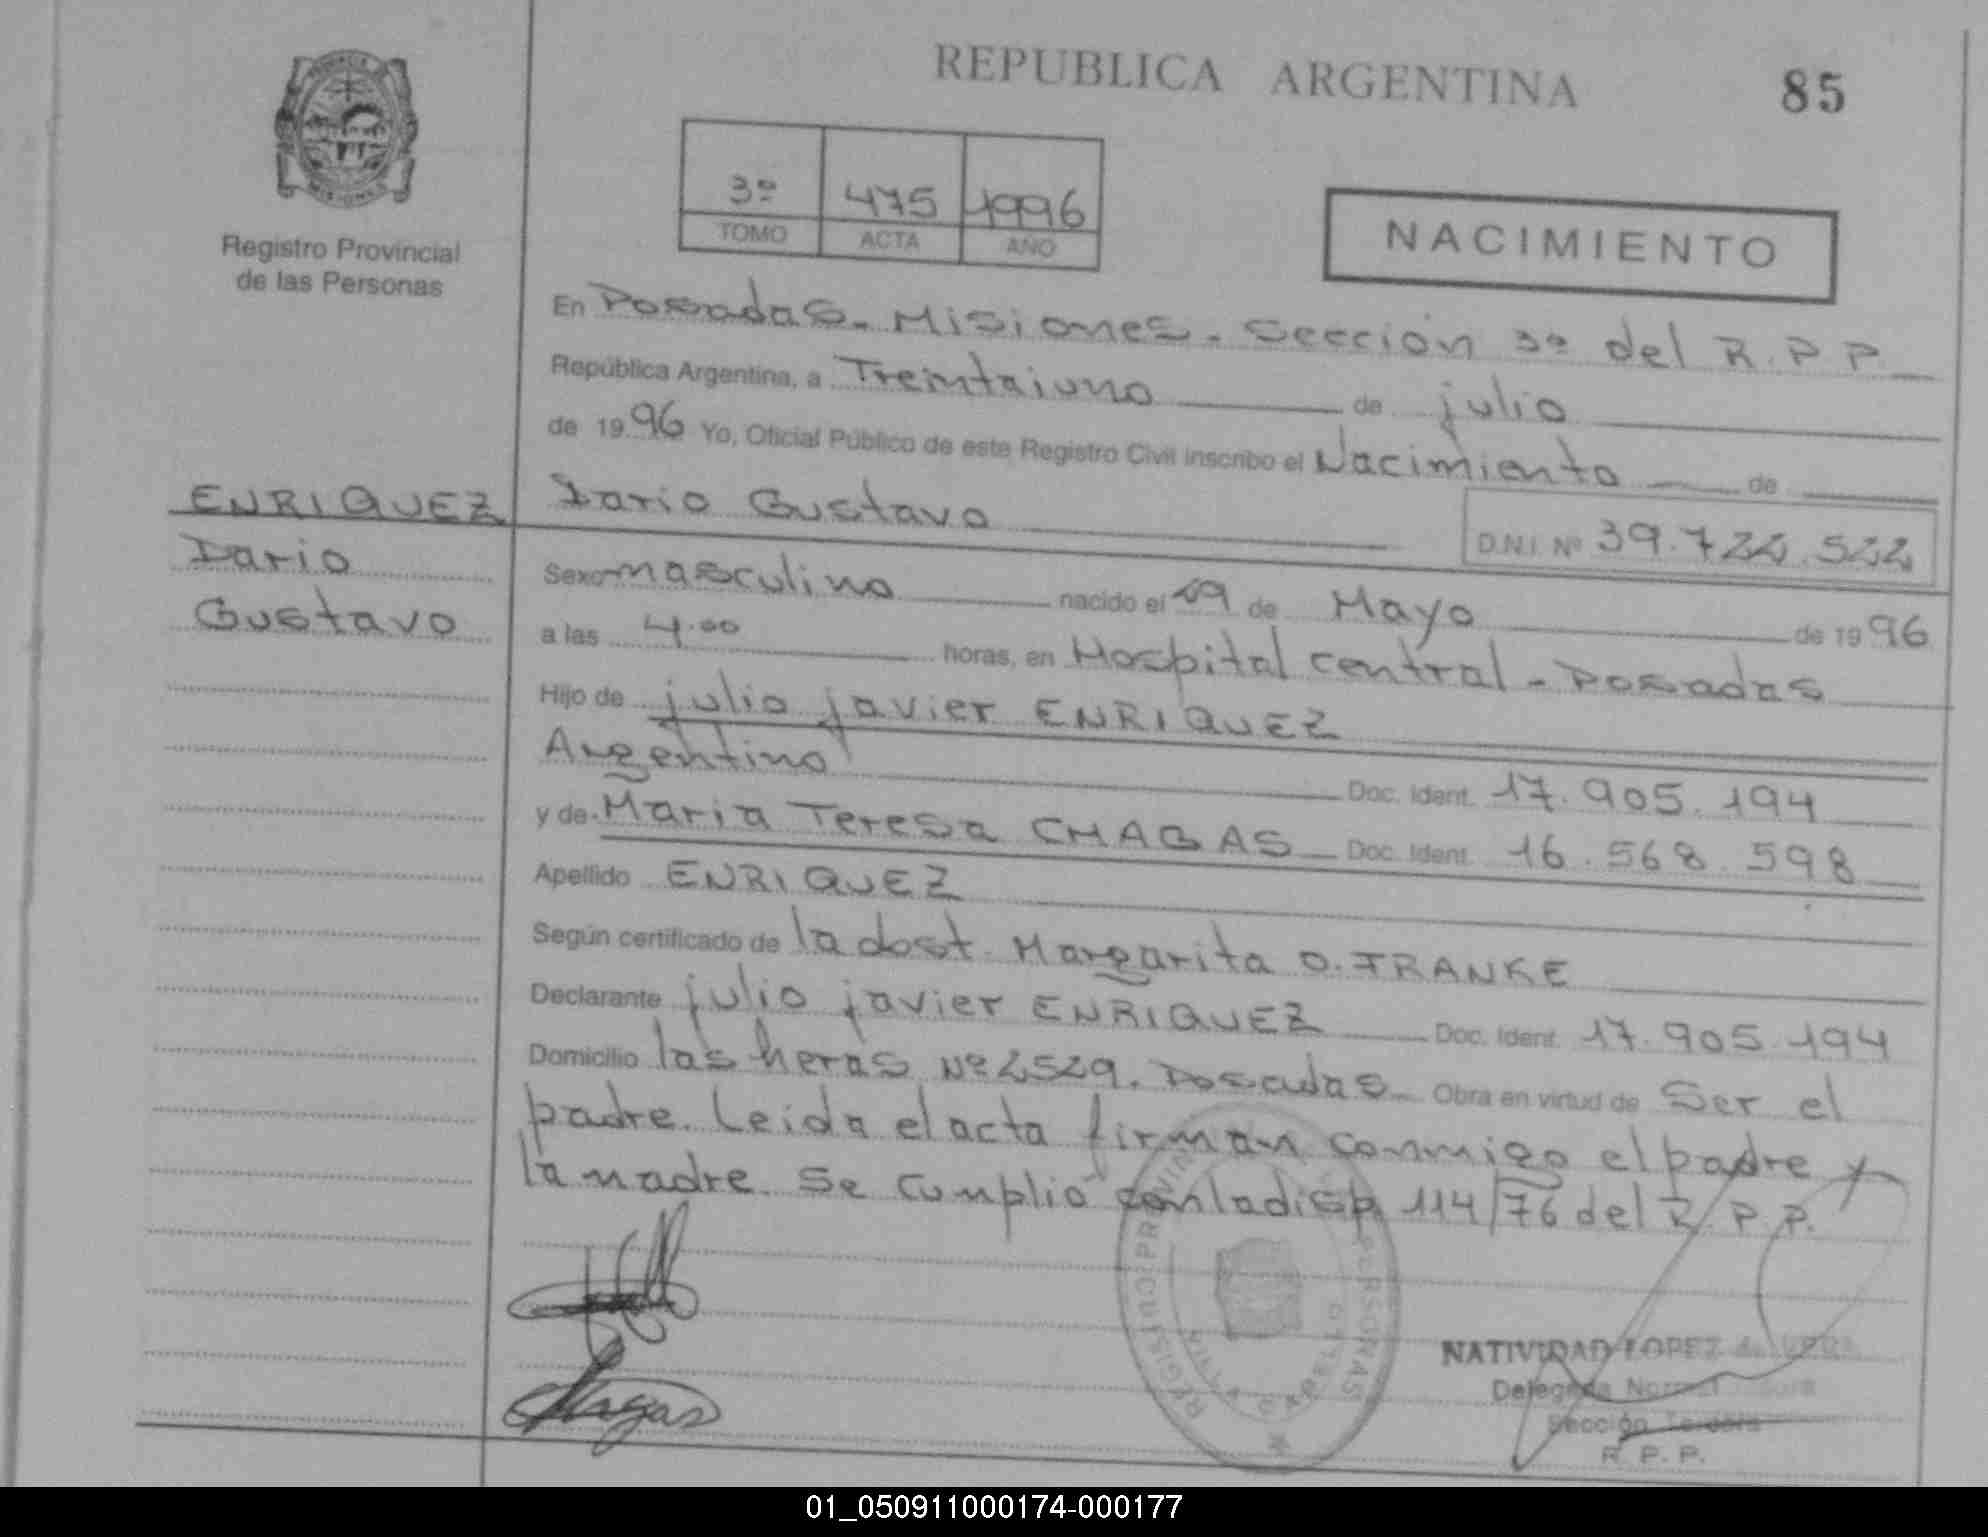 REPUBLICA ARGENTINA
85
3º 475 1996
TOMO ACTA AÑO
NACIMIENTO
Registro Provincial
de las Personas
En Posadas. Misiones. Sección 3º del R.P.P.
República Argentina, a Treintaiuno de julio
de 1996 Yo, Oficial Público de este Registro Civil inscribo el Nacimiento de
ENRIQUEZ
Dario
Gustavo
Dario Gustavo
D.N.I. Nº 39.722.522
Sexo masculino nacido el 29 de Mayo de 1996
a las 4.00 horas, en Hospital central - Posadas
Hijo de julio javier ENRIQUEZ
Argentino Doc. Ident. 17.905.194
y de Maria Teresa CHAGAS Doc. Ident. 16.568.598
Apellido ENRIQUEZ
Según certificado de la dost. Margarita O. FRANKE
Declarante julio javier ENRIQUEZ Doc. Ident. 17.905.194
Domicilio las heras Nº 2529. Posadas Obra en virtud de Ser el
padre. Leida el acta firman conmigo el padre y
la madre. Se cumplió con la disp. 114/76 del R.P.P.
Chagas
REGISTRO PERSONAS
NATIVIDAD LOPEZ
Delegada
Sección Tercera
R. P. P.
01_050911000174-000177